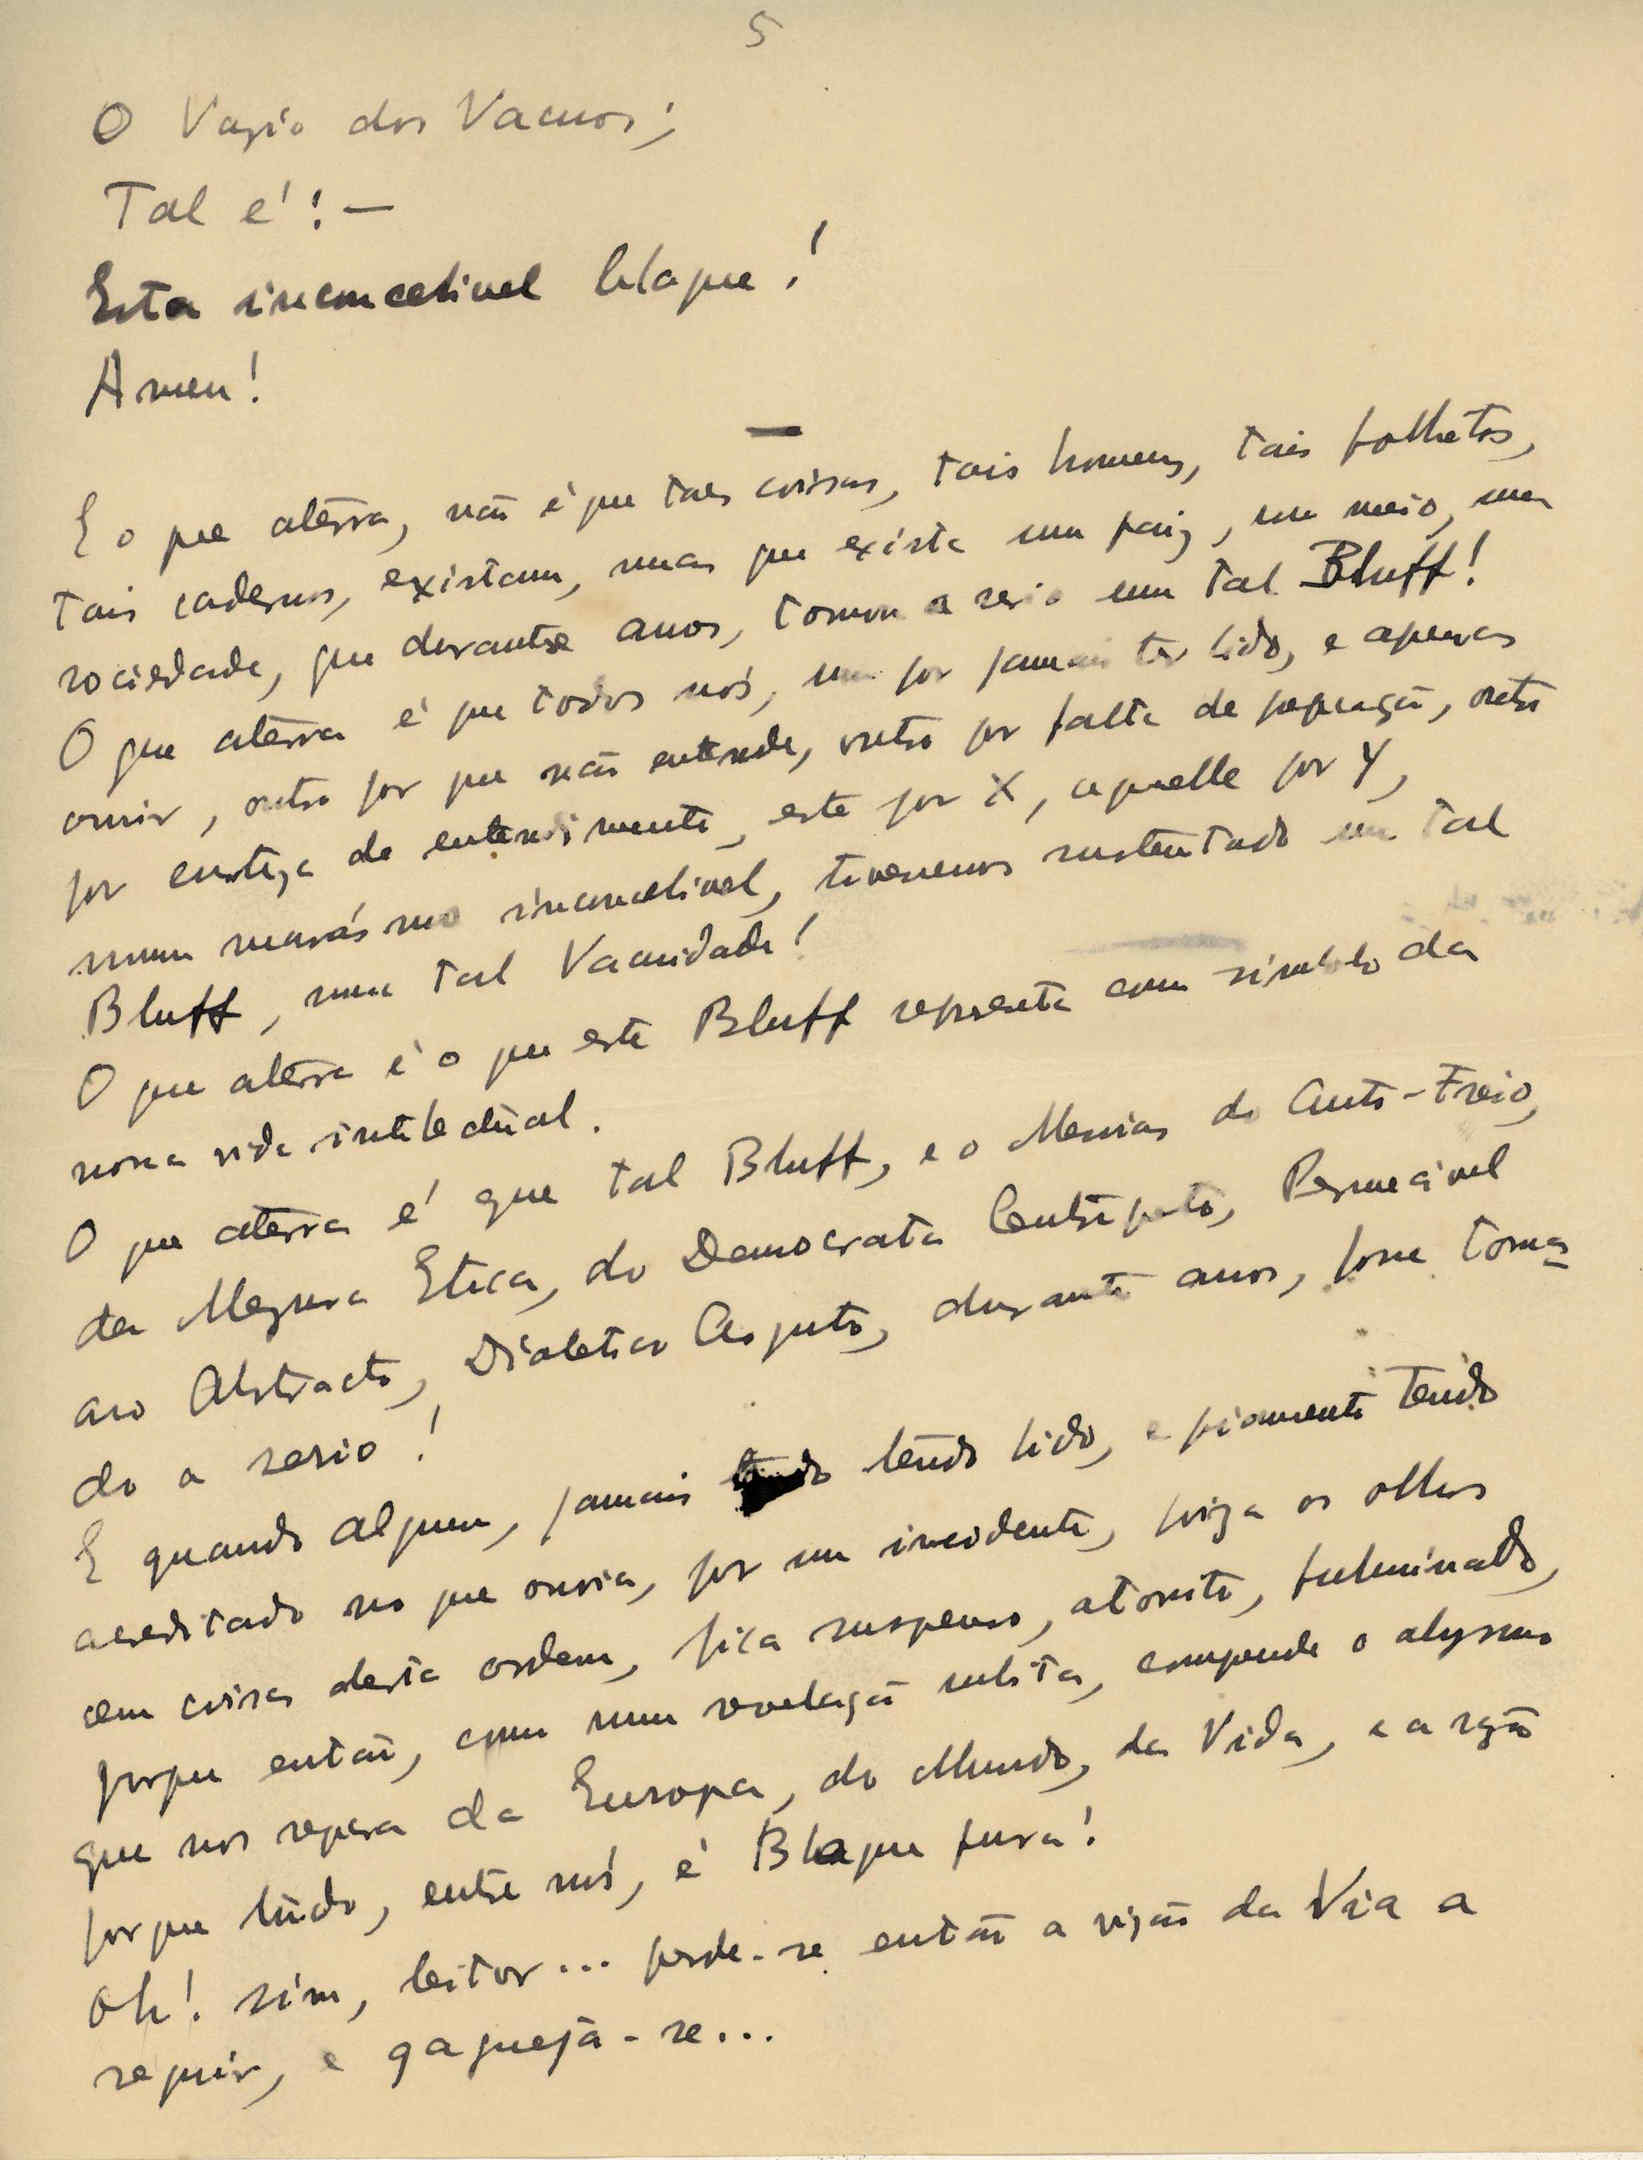 5
O Vazio dos Vacuos;
Tal é! —
Esta inconcebivel blague!
Amen!
—
E o que aterra, não é que taes coisas, tais homens, tais folhetos,
tais cadernos, existam, mas que exista um paiz, um meio, uma
sociedade, que durante anos, tomou a serio um tal Bluff!
O que aterra é que todos nós, um por jamais ter lido, e apenas
ouvir, outro por que não entende, outro por falta de preparação, outro
por curteza de entendimento, este por X, aquelle por Y,
num marásmo inconcebivel, tivessemos sustentado um tal
Bluff, uma tal Vacuidade!
O que aterra é o que este Bluff representa como simbolo da
nossa vida intelectual.
O que aterra é que tal Bluff, e o Messias do Auto-Freio,
da Magna Etica, do Democrata Centripeto, Permeável
ao Abstracto, Dialetico Arguto, durante anos, fosse toma-
do a serio!
E quando alguem, jamais tendo lido, e piamente tendo
acreditado no que ouvia, por um incidente, poiza os olhos
em coisas desta ordem, fica suspenso, atonito, fulminado,
porque então, como numa revelação subita, compreende o abysmo
que nos separa da Europa, do Mundo, da Vida, e a razão
porque tudo, entre nós, é Blague pura!
Oh! sim, leitor... perde-se então a vizão da Via a
seguir, e gagueja-se...